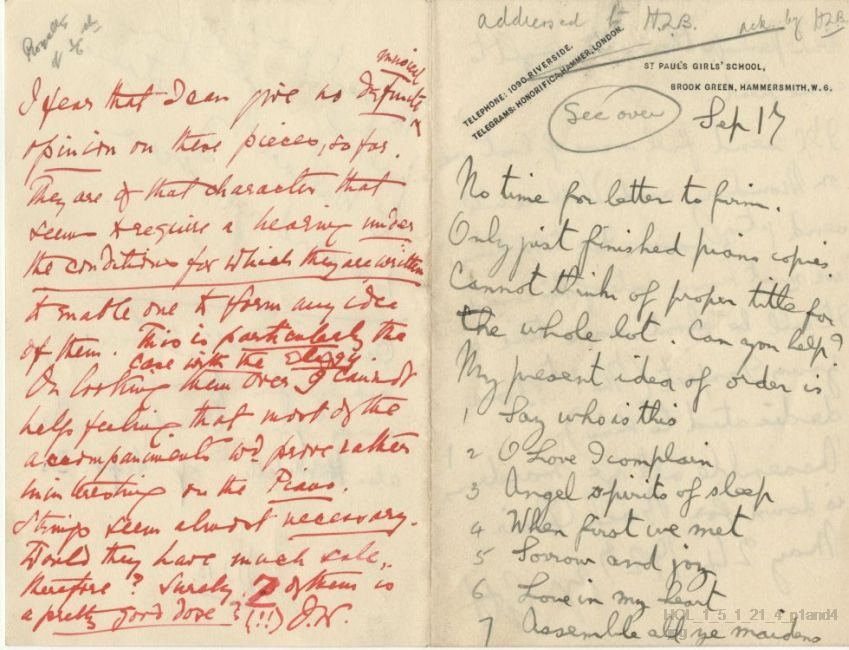 I fear that I can give no definite
musical
opinion on these pieces, so far.
They are of that character that
seems to require a hearing under
the conditions for which they are written
to enable one to form any idea
of them. This is particularly the
case with the elegy.
On looking them over I cannot
help feeling that most of the
accompaniments wd prove rather
uninteresting on the Piano.
Strings seem almost necessary.
Would they have much sale,
therefore? Surely 7 of them is
a pretty good dose? (!!) J.W.
addressed to H.L.B. ack. by H.L.B.
TELEPHONE: 1090 RIVERSIDE.
TELEGRAMS: HONORIFICA, HAMMER, LONDON.
ST PAUL'S GIRLS' SCHOOL,
BROOK GREEN, HAMMERSMITH, W. 6.
See over
Sep 17
No time for letter to firm.
Only just finished piano copies.
Cannot think of proper title for
the whole lot. Can you help?
My present idea of order is
1 Say who is this
2 O Love I complain
3 Angel spirits of sleep
4 When first we met
5 Sorrow and joy
6 Love in my heart
7 Assemble all ye maidens
HOL_1_5_1_21_4_p1and4